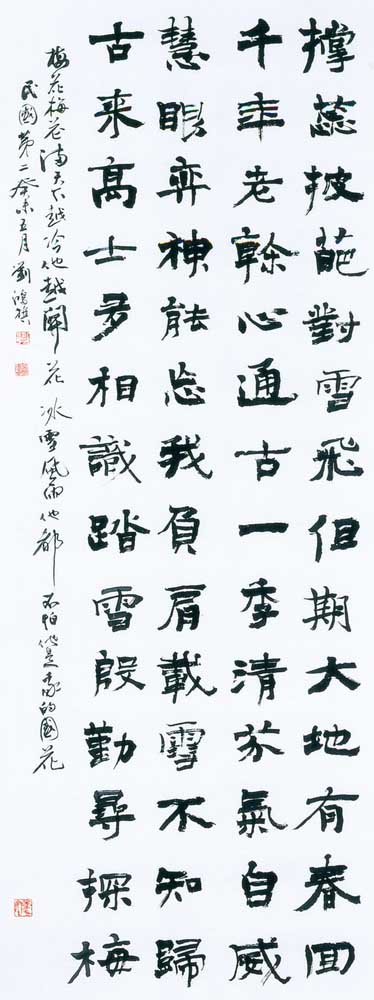 撐蕊披葩對雪飛但期大地有春回
千年老幹心通古一季清芬氣自威
慧眼弈神能忘我負肩載雪不知歸
古來高士多相識踏雪殷勤尋探梅
梅花梅花滿天下越冷他越開花冰雪風雨他都不怕他是我的國花
民國第二癸未五月劉鴻